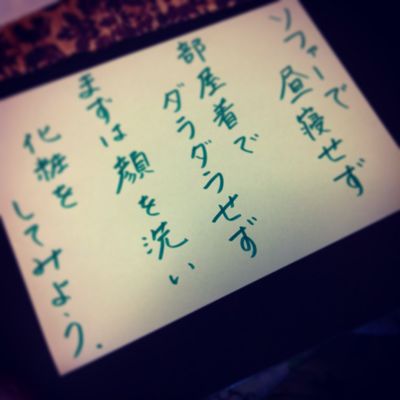 ソファーで
昼寝せず
部屋着で
ダラダラせず
まずは顔を洗い
化粧を
してみよう.